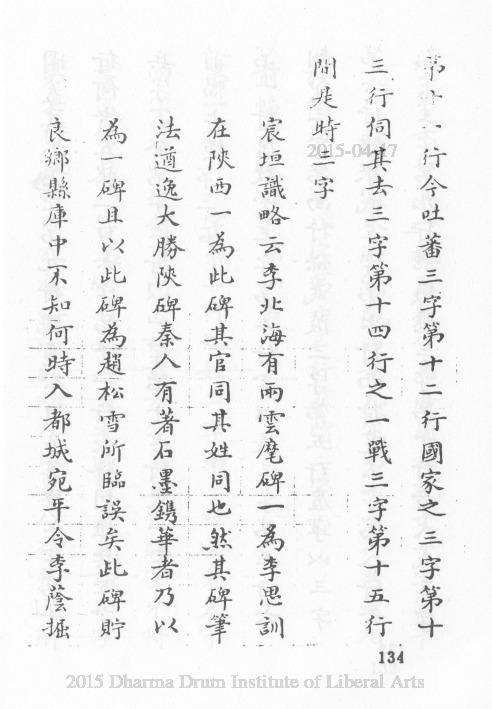 第十一行今吐蕃三字第十二行國家之三字第十
三行伺其去三字第十四行之一戰三字第十五行
間是時三字
宸垣識略云李北海有兩雲麾碑一為李思訓
在陝西一為此碑其官同其姓同也然其碑筆
法遒逸大勝陝碑秦人有著石墨鐫華者乃以
為一碑且以此碑為趙松雪所臨誤矣此碑貯
良鄉縣庫中不知何時入都城宛平令李蔭掘
134
2015-04-17
2015 Dharma Drum Institute of Liberal Arts